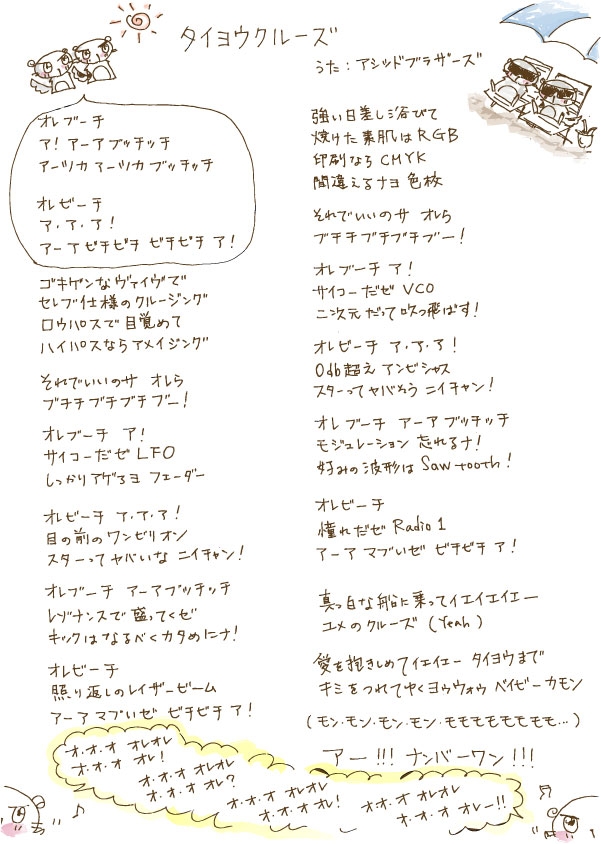 タイヨウクルーズ
うた：アシッドブラザーズ
オレブーチ
ア！ アーア ブッチッチ
アーツカ アーツカ ブッチッチ
オレビーチ
ア・ア・ア！
アーア ビチビチ ビチビチ ア！
ゴキゲンなヴァイヴで
セレブ仕様のクルージング
ロウパスで目覚めて
ハイパスならアメイジング
それでいいのサ オレら
ブチチブチブチブー！
オレブーチ ア！
サイコーだゼ LFO
しっかりアゲろヨ フェーダー
オレビーチ ア・ア・ア！
目の前のワンビリオン
スターってヤバいな ニイチャン！
オレブーチ アーアブッチッチ
レゾナンスで盛ってくゼ
キックはなるべくカタめにナ！
オレビーチ
照り返しのレイザービーム
アーア マブいゼ ビチビチ ア！
強い日差し浴びて
焼けた素肌はRGB
印刷なら CMYK
間違えるナヨ 色校
それでいいのサ オレら
ブチチブチブチブー！
オレブーチ ア！
サイコーだゼ VCO
二次元だって吹っ飛ばす！
オレビーチ ア・ア・ア！
0db超え アンビシャス
スターってヤバそう ニイチャン！
オレブーチ アーア ブッチッチ
モジュレーション 忘れるナ！
好みの波形は Saw tooth！
オレビーチ
憧れだゼ Radio 1
アーア マブいゼ ビチビチ ア！
真っ白な船に乗ってイエイエイエー
ユメのクルーズ (Yeah)
愛を抱きしめてイエイエー タイヨウまで
キミをつれてゆくヨゥウォゥ ベイビーカモン
(モン・モン・モン・モン・モモモモモモモモ...)
アー!!! ナンバーワン!!!
オ・オ・オ オレオレ
オ・オ・オ オレ！
オ・オ・オ オレオレ
オ・オ・オ オレ？
オ・オ・オ オレオレ
オ・オ・オ オレ！
オ・オ・オ オレオレ
オ・オ・オ オレー!!